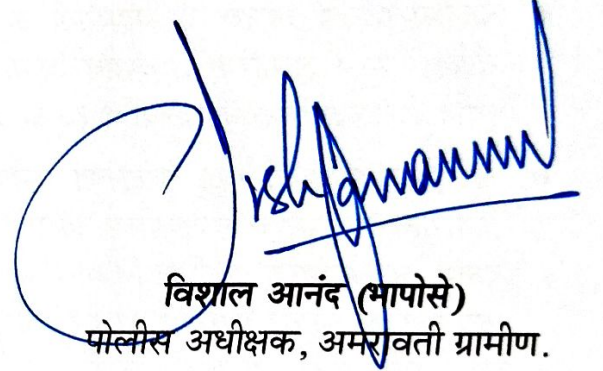 विशाल आनंद (भापोसे)
पोलीस अधीक्षक, अमरावती ग्रामीण.